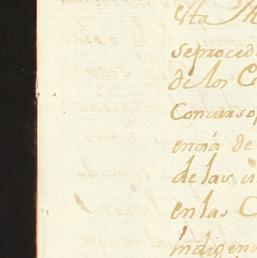 esta
se proced
de los C
Concurso
encia de
de las
en las C
indigen